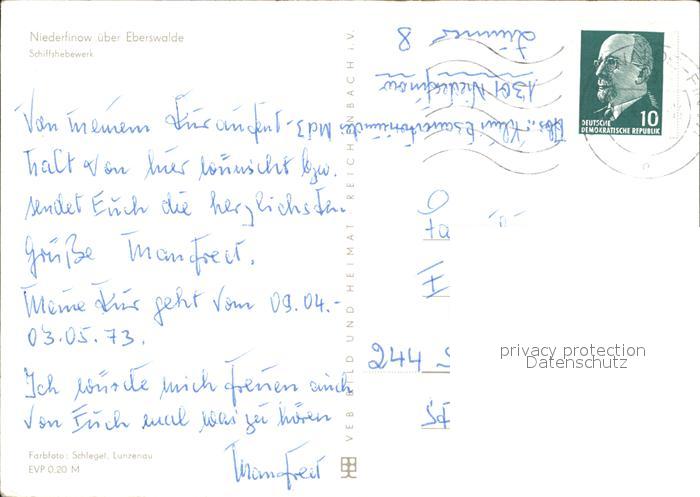 Niederfinow über Eberswalde
Schiffshebewerk
Von meinem Kuraufent-
halt von hier wünscht bzw.
sendet Euch die herzlichsten
Grüße Manfred.
Meine Kur geht vom 09.04.-
03.05.73.
Ich würde mich freuen auch
von Euch mal was zu hören
Manfred
Farbfoto: Schlegel, Lunzenau
EVP 0,20 M
VEB BILD UND HEIMAT REICHENBACH i. V.
Abs.: Sanatorium des MdI
1301 Niederfinow
Zimmer 8
10
DEUTSCHE
DEMOKRATISCHE REPUBLIK
244
privacy protection
Datenschutz